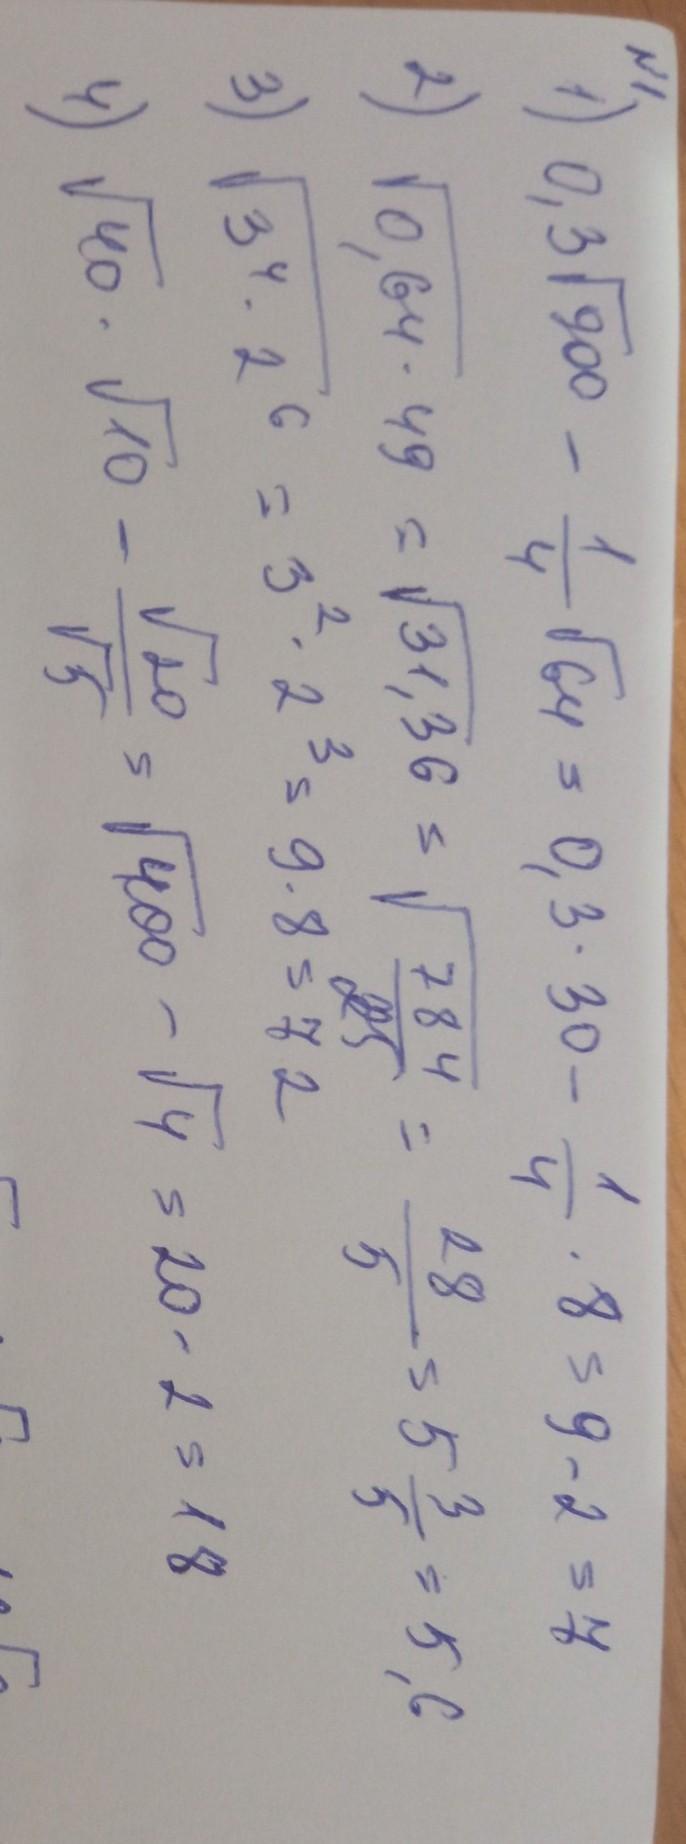 №1.
1) 0,3√900 - 1/4 √64 = 0,3·30 - 1/4 · 8 = 9 - 2 = 7
2) √0,64·49 = √31,36 = √784/25 = 28/5 = 5 3/5 = 5,6
3) √3⁴·2⁶ = 3²·2³ = 9·8 = 72
4) √40·√10 - √20/√5 = √400 - √4 = 20 - 2 = 18